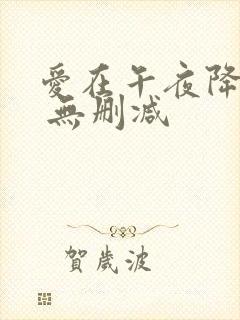 愛在午夜降
無刪減
賀歲波